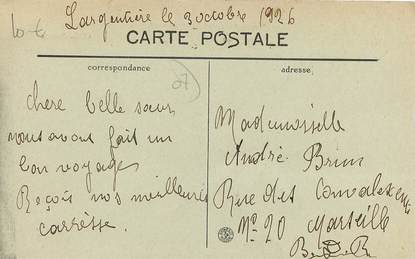 Largentière le 3 octobre 1926
CARTE POSTALE
correspondance
adresse
07
chere belle sœur
nous avons fait un
bon voyages
Reçois nos meilleures
carrèsse.
Mademoiselle
André Brun
Rue des Convalescents
No 20 Marseille
B du R